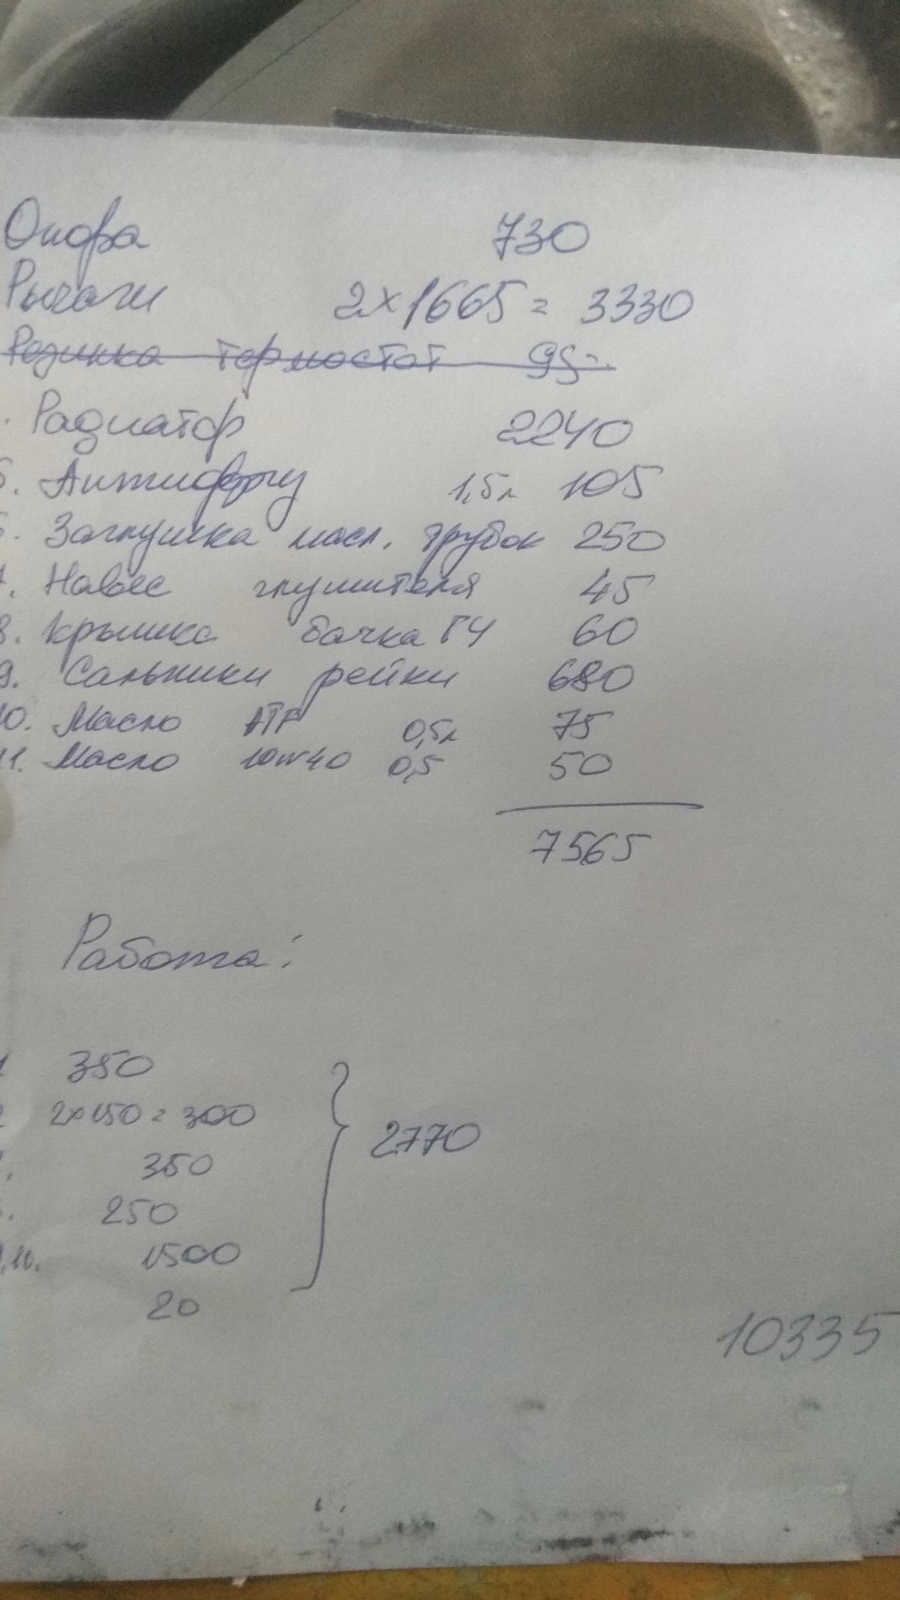 Опора 730
Рычаги 2×1665 = 3330
Резинка термостат 95-.
Радиатор 2240
5. Антифриз 1,5л 105
6. Заглушка масл. трубок 250
7. Навес глушителя 45
8. Крышка бачка ГУ 60
9. Сальники рейки 680
10. Масло ATF 0,5л 75
11. Масло 10w40 0,5 50
7565
Работа:
1 350
2 2×150 = 300
350
250
9,10. 1500
20
2770
10335